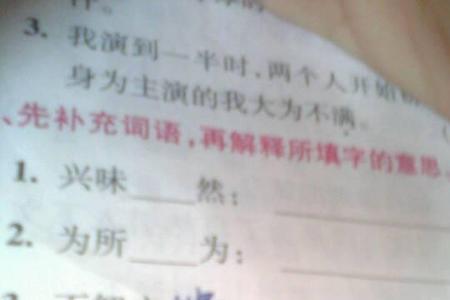 3. 我演到一半时,两个人开始
身为主演的我大为不满。
、先补充词语,再解释所填字的意思。
1. 兴味____然:
2. 为所____为: